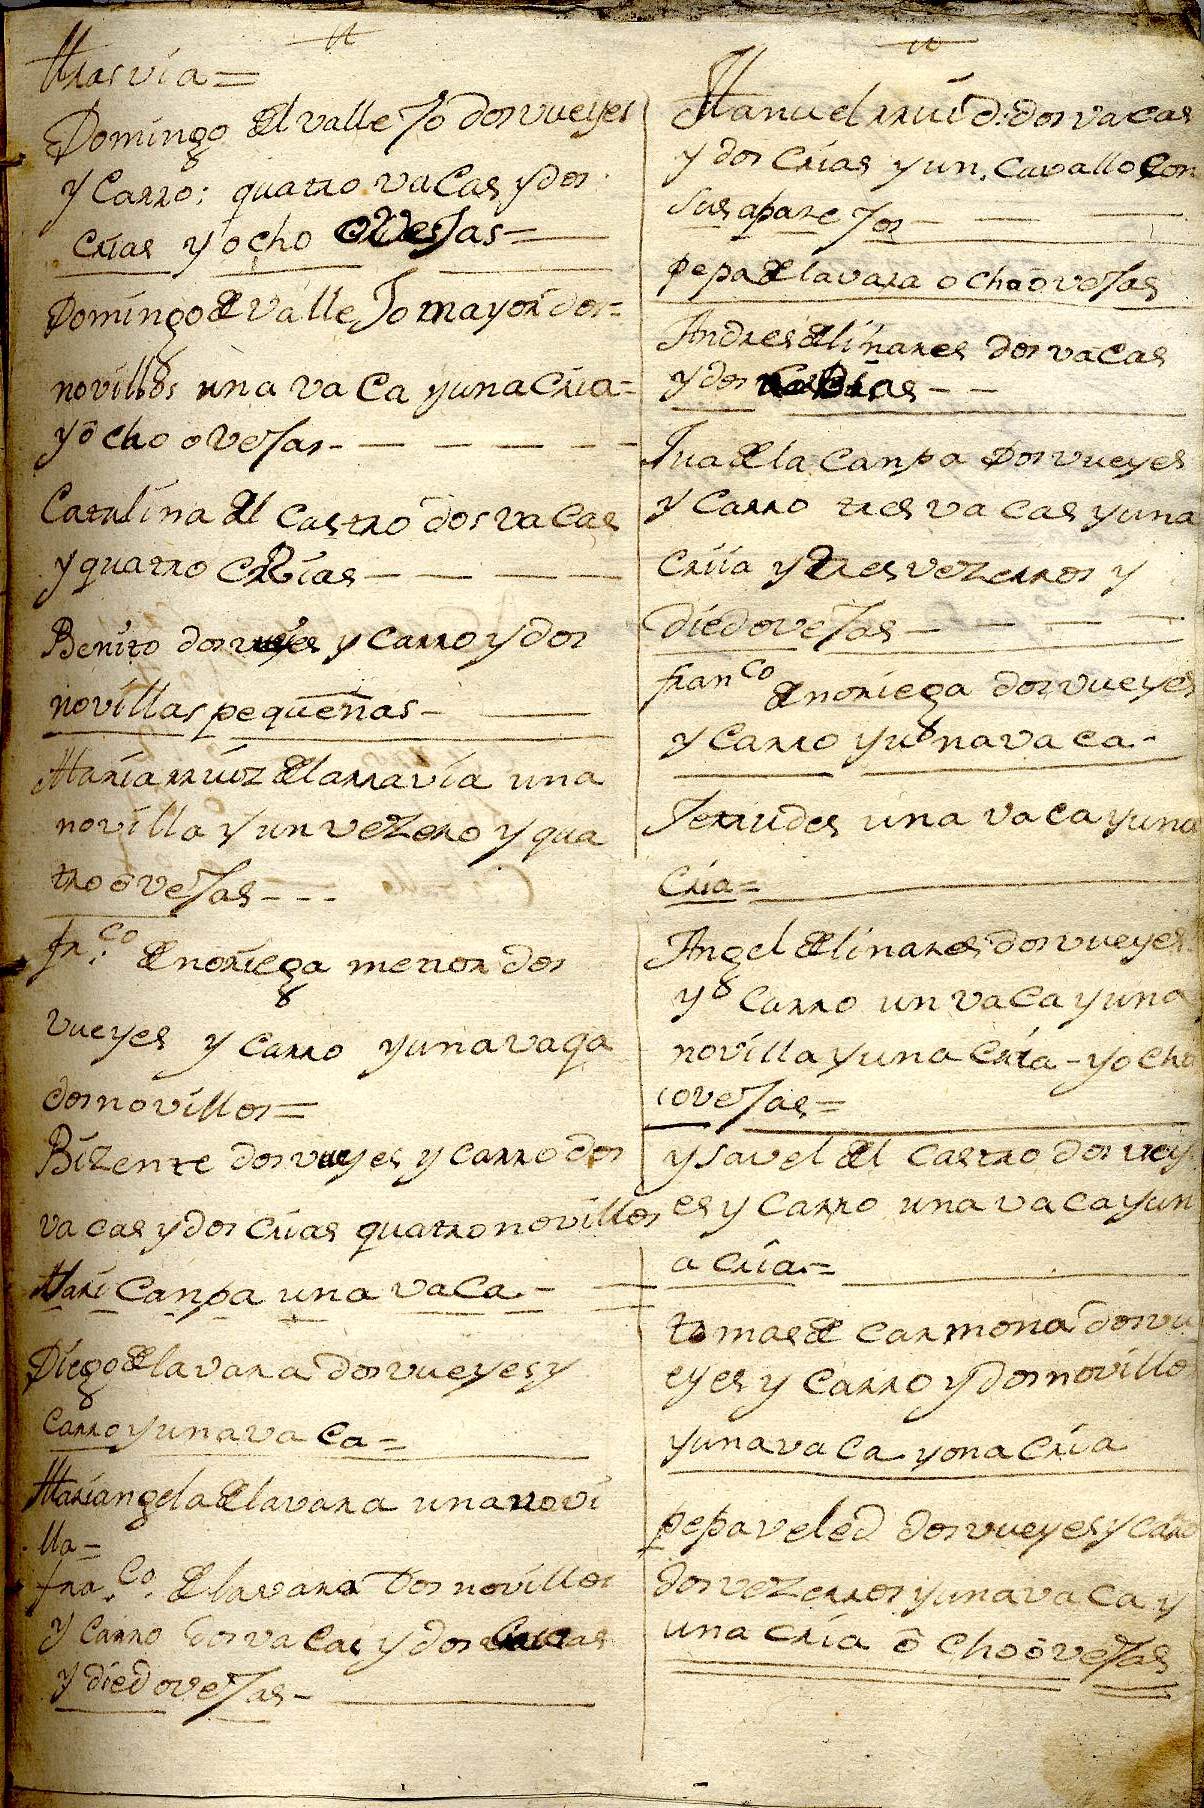 Domingo del valleJo dos vueyes
y Carro: quatro vaCas y dos
crias y ocho oveJas=
Domingo de valleJo mayor dos=
novillos una vaCa y una Cria=
y ocho oveJas-
Catalina del Castro dos vaCas
y quatro CRias-
Benito dos vueyes y Carro y dos
novillas pequeñas-
Maria rruiz de larravia una
novilla y un vezerro y qua
tro oveJas---
fr.co de noriega menor dos
vueyes y Carro y una vaqa
dos novillos=
Bizente dos vueyes y Carro dos
vacas y dos Crias quatro novillos
Mari Canpa una vaCa-
Diego de la vara dos vueyes y
Carro y una vaCa=
Mariangela de la vara una novi
lla=
fra.co de la vara Dos novillos
y Carro dos vaCas y dos
y died oveJas-
Manuel rruid: dos vaCas
y dos Crias y un Cavallo Con
sus apareJos
pepa de la vara ocho oveJas
Andres de linares dos vaCas
y dos
Jua de la Canpa Dos vueyes
y Carro tres vaCas y una
Criia y tres vezerros y
died oveJas-
franco de noriega dos vueyes
y Carro y una vaCa-
Jetrudes una vaCa y una
Cria=
Angel de linares dos vueyes
y Carro un vaCa y una
novilla y una Cria-y ocho
oveJas=
ysavel del Castro dos vuey
es y Carro una vaCa y un
a Cria=
tomas de Carmona dos vu
eyes y Carro y dos novillo
y una vaCa y ona Cria
pepa veled dos vueyes y Carro
dos vezerros y una vaCa y
una Cria ocho oveJas